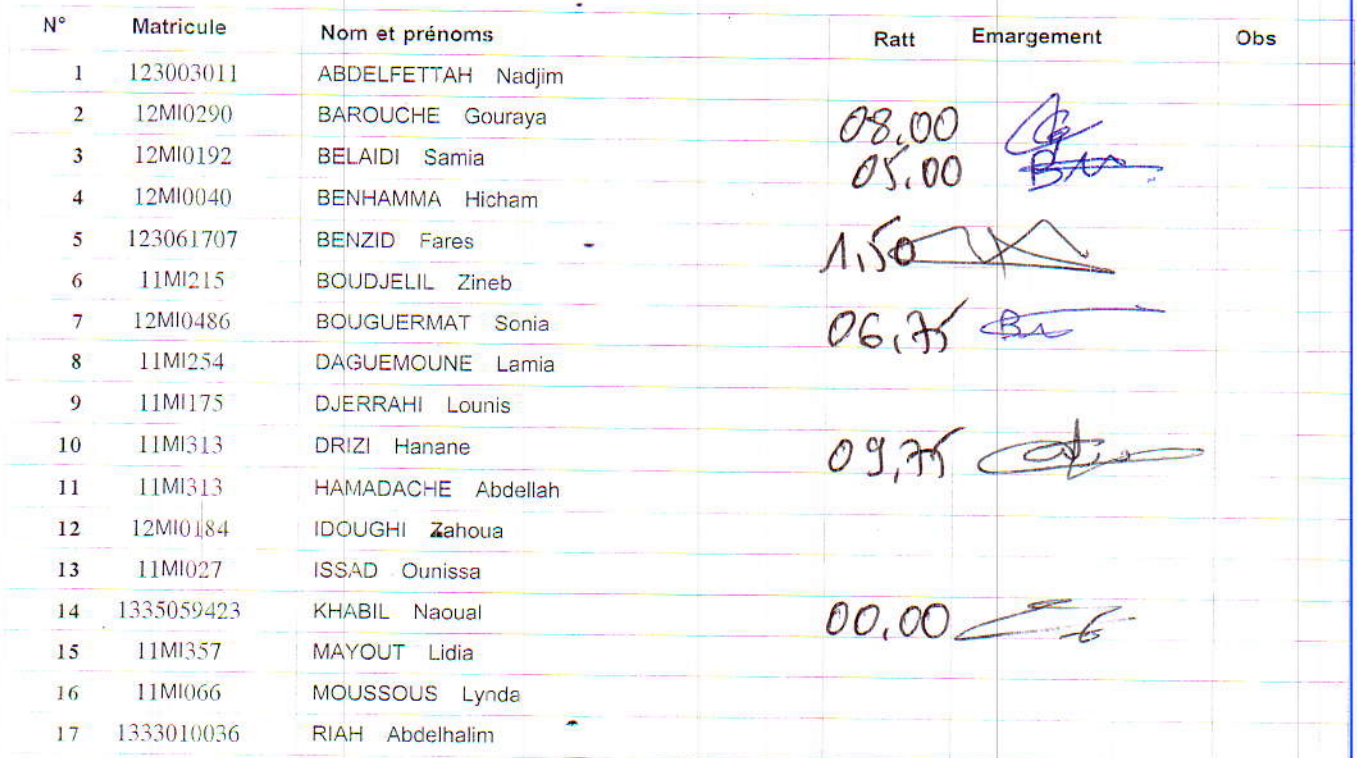 N° Matricule Nom et prénoms Ratt Emargement Obs
1 123003011 ABDELFETTAH Nadjim
2 12MI0290 BAROUCHE Gouraya 08,00
3 12MI0192 BELAIDI Samia 05,00
4 12MI0040 BENHAMMA Hicham
5 123061707 BENZID Fares 1,50
6 11MI215 BOUDJELIL Zineb
7 12MI0486 BOUGUERMAT Sonia 06,75
8 11MI254 DAGUEMOUNE Lamia
9 11MI175 DJERRAHI Lounis
10 11MI313 DRIZI Hanane 09,75
11 11MI313 HAMADACHE Abdellah
12 12MI0184 IDOUGHI Zahoua
13 11MI027 ISSAD Ounissa
14 1335059423 KHABIL Naoual 00,00
15 11MI357 MAYOUT Lidia
16 11MI066 MOUSSOUS Lynda
17 1333010036 RIAH Abdelhalim